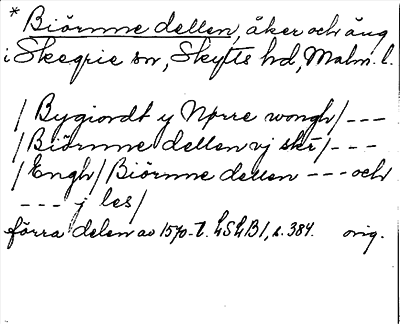 * Biörnne dellen, åker och äng
i Skegrie sn, Skytts hd, Malm. l.
/ Bygiordt y Nørre wongh / ---
/ Biörnne dellen vj skr / ---
/ Engh / Biörnne dellen --- och
--- j les /
förra delen av 1570-t. LSLB1, s. 384. orig.